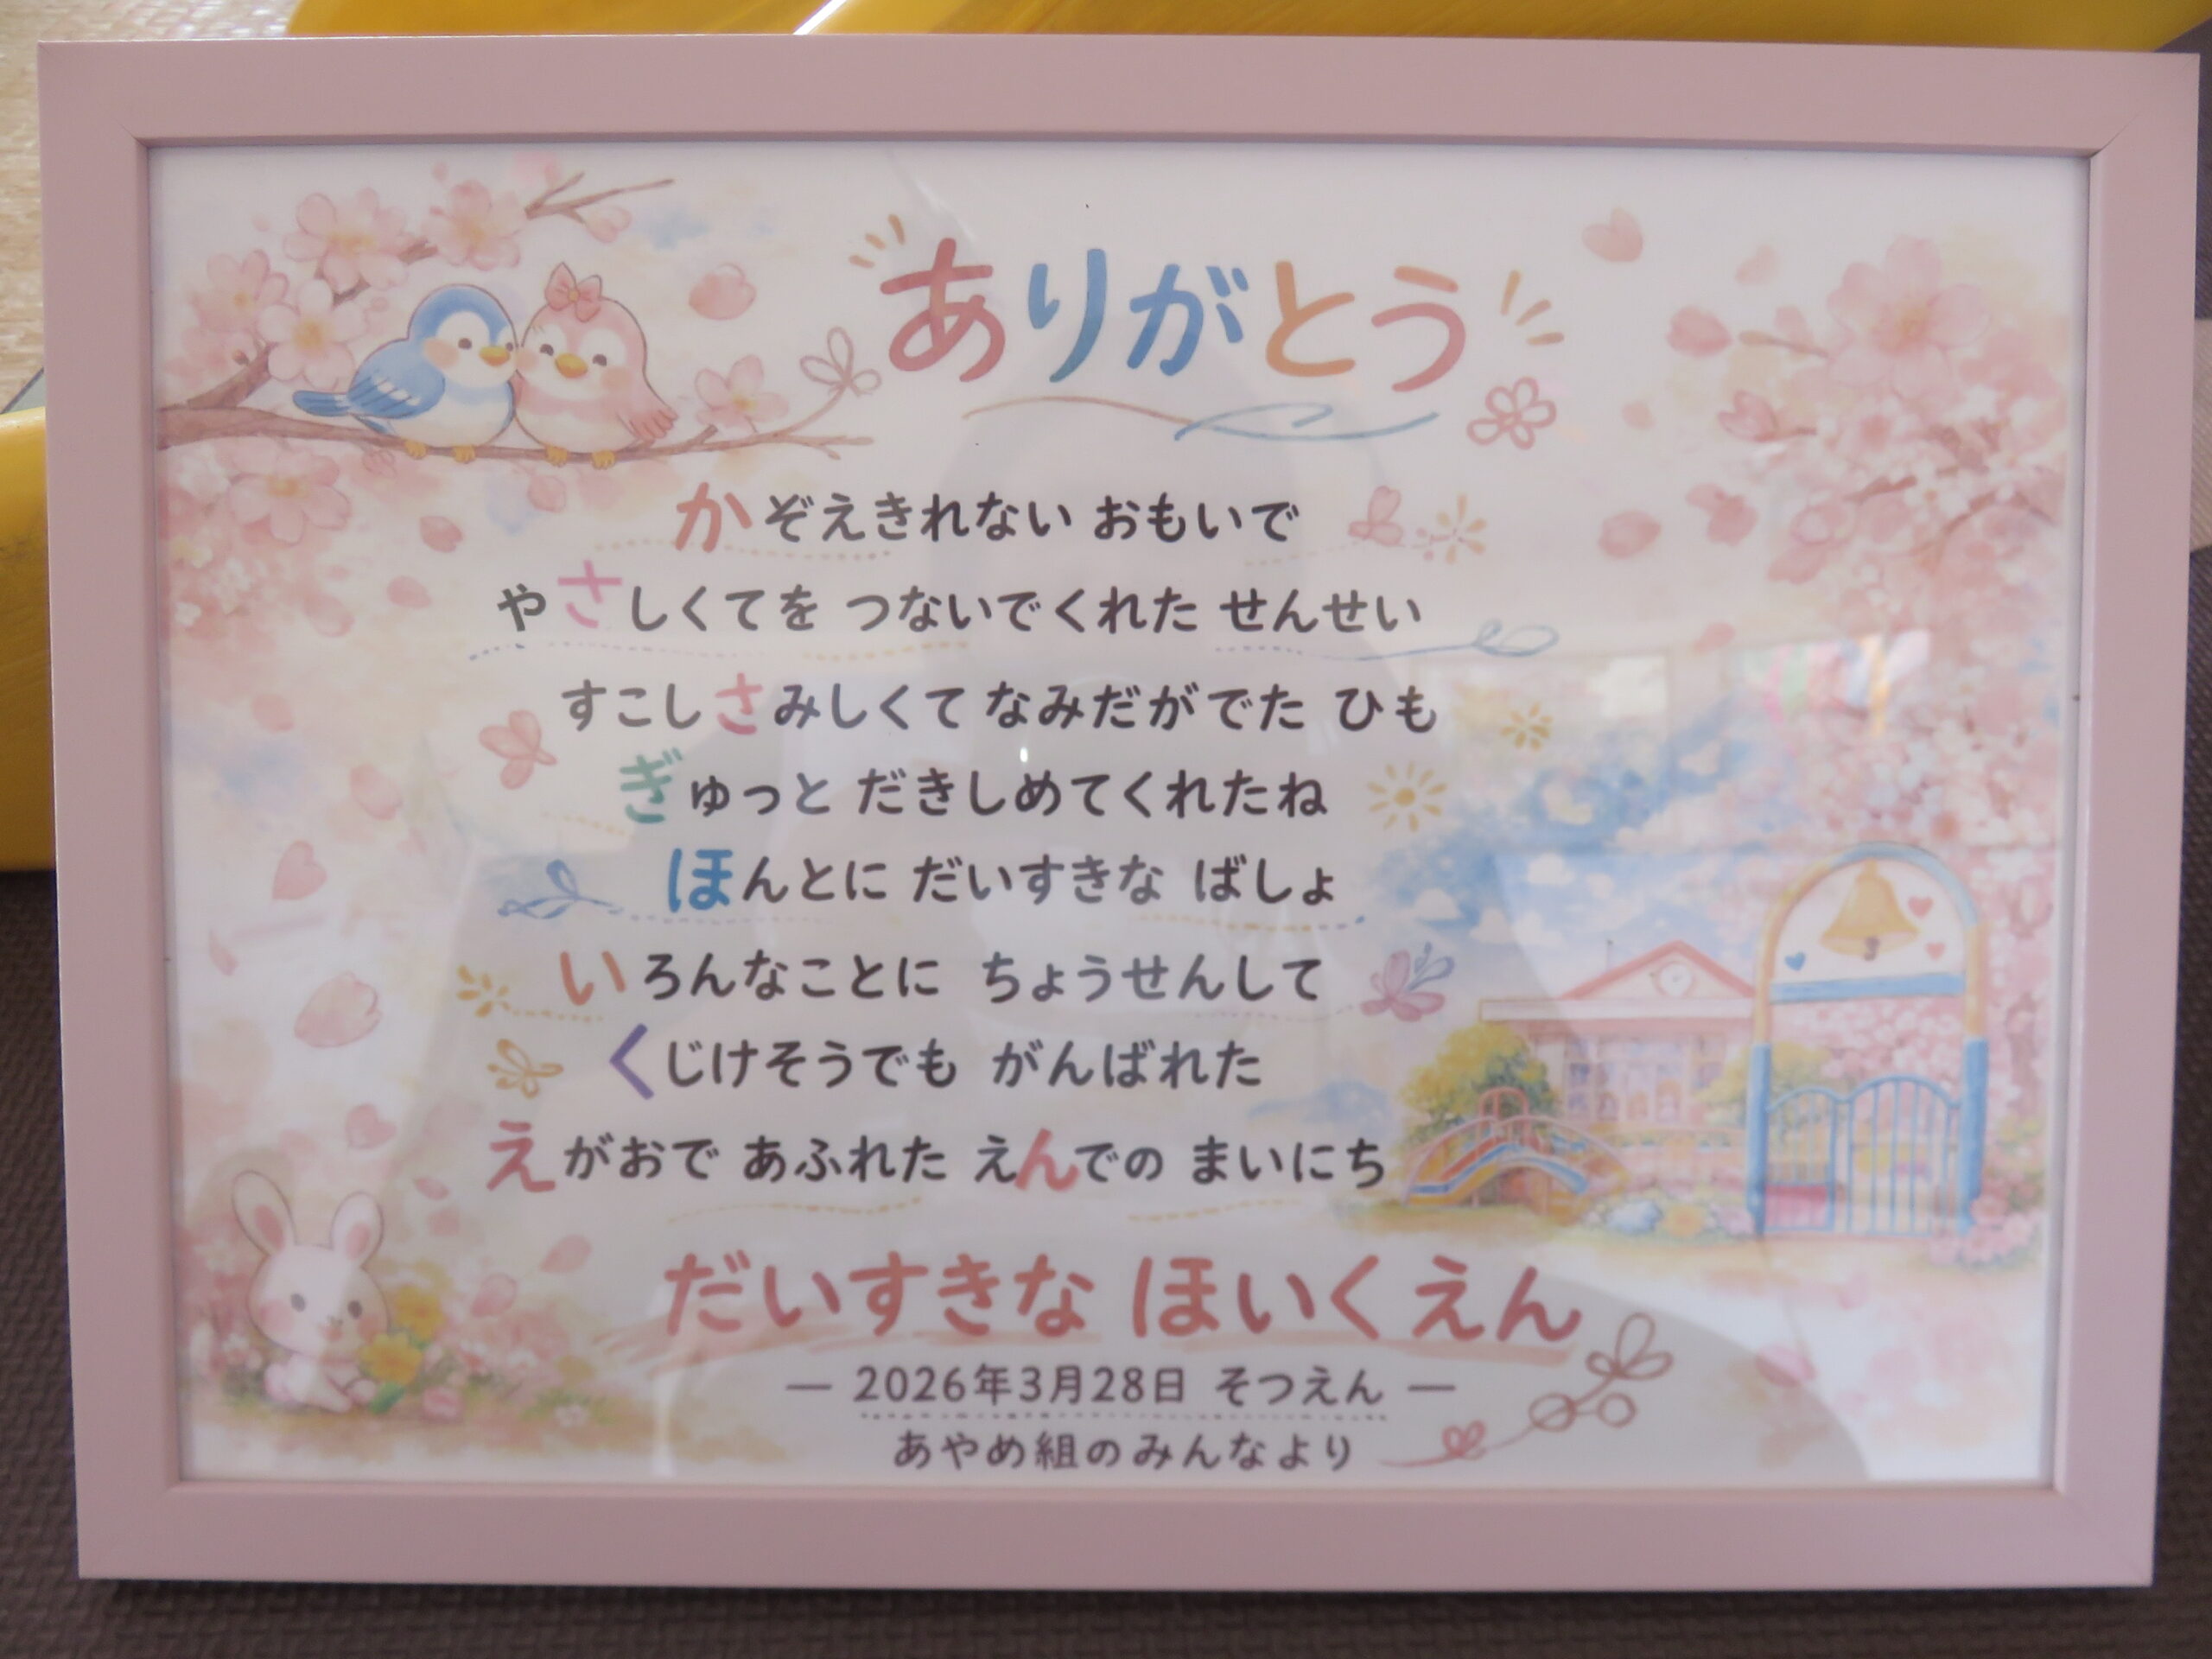 ありがとう
かぞえきれない おもいで
やさしくてを つないでくれた せんせい
すこしさみしくて なみだがでた ひも
ぎゅっと だきしめてくれたね
ほんとに だいすきな ばしょ
いろんなことに ちょうせんして
くじけそうでも がんばれた
えがおで あふれた えんでの まいにち
だいすきな ほいくえん
― 2026年3月28日 そつえん ―
あやめ組のみんなより